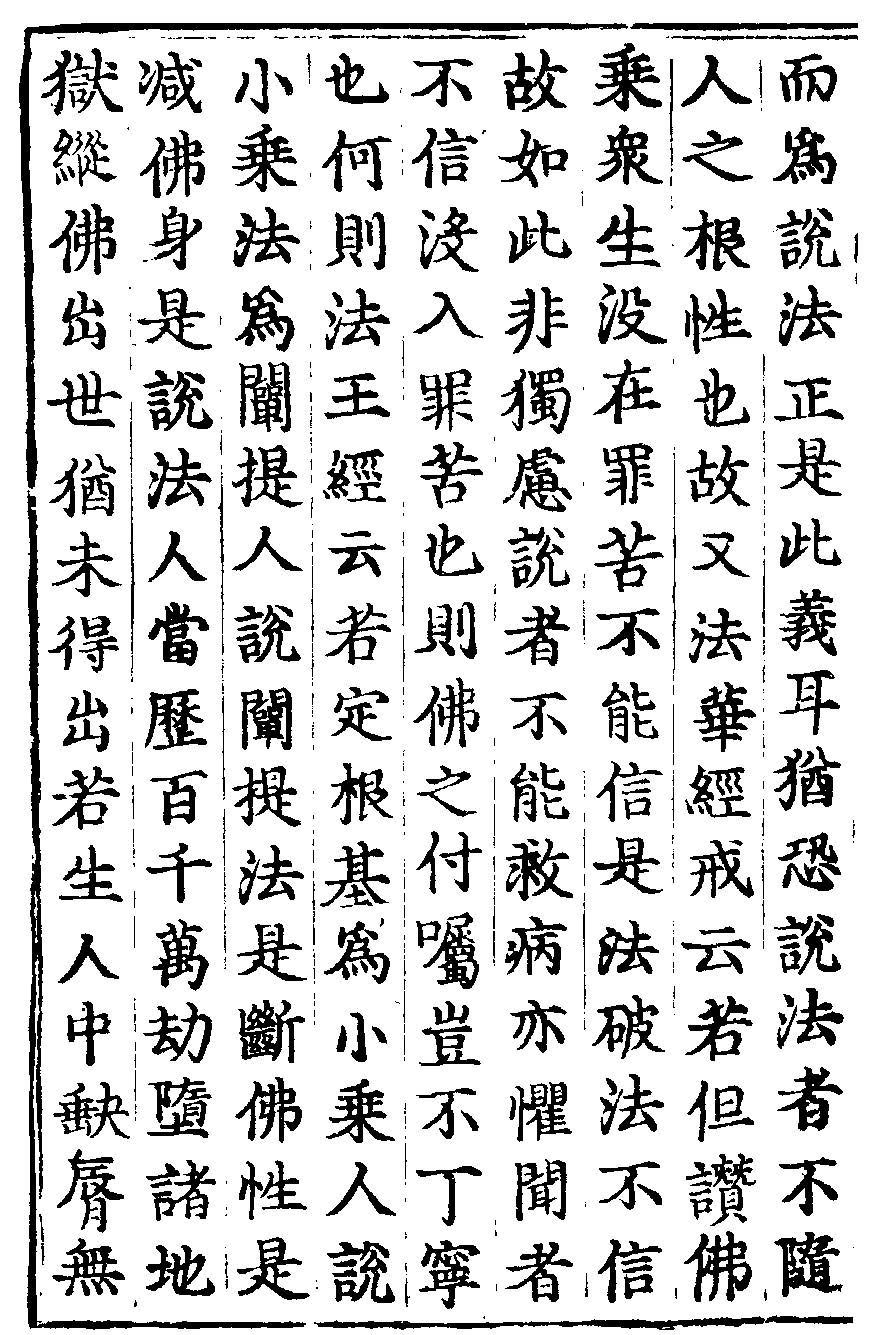 而爲説法正是此義耳猶恐説法者不隨
人之根性也故又法華經戒云若但讃佛
乗衆生没在罪苦不能信是法破法不信
故如此非獨慮説者不能救病亦懼聞者
不信没入罪苦也則佛之付囑豈不丁寧
也何則法王經云若定根基爲小乗人説
小乗法爲闡提人説闡提法是斷佛性是
减佛身是説法人當歷百千萬劫墮諸地
獄縱佛出世猶未得出若生人中缺脣無